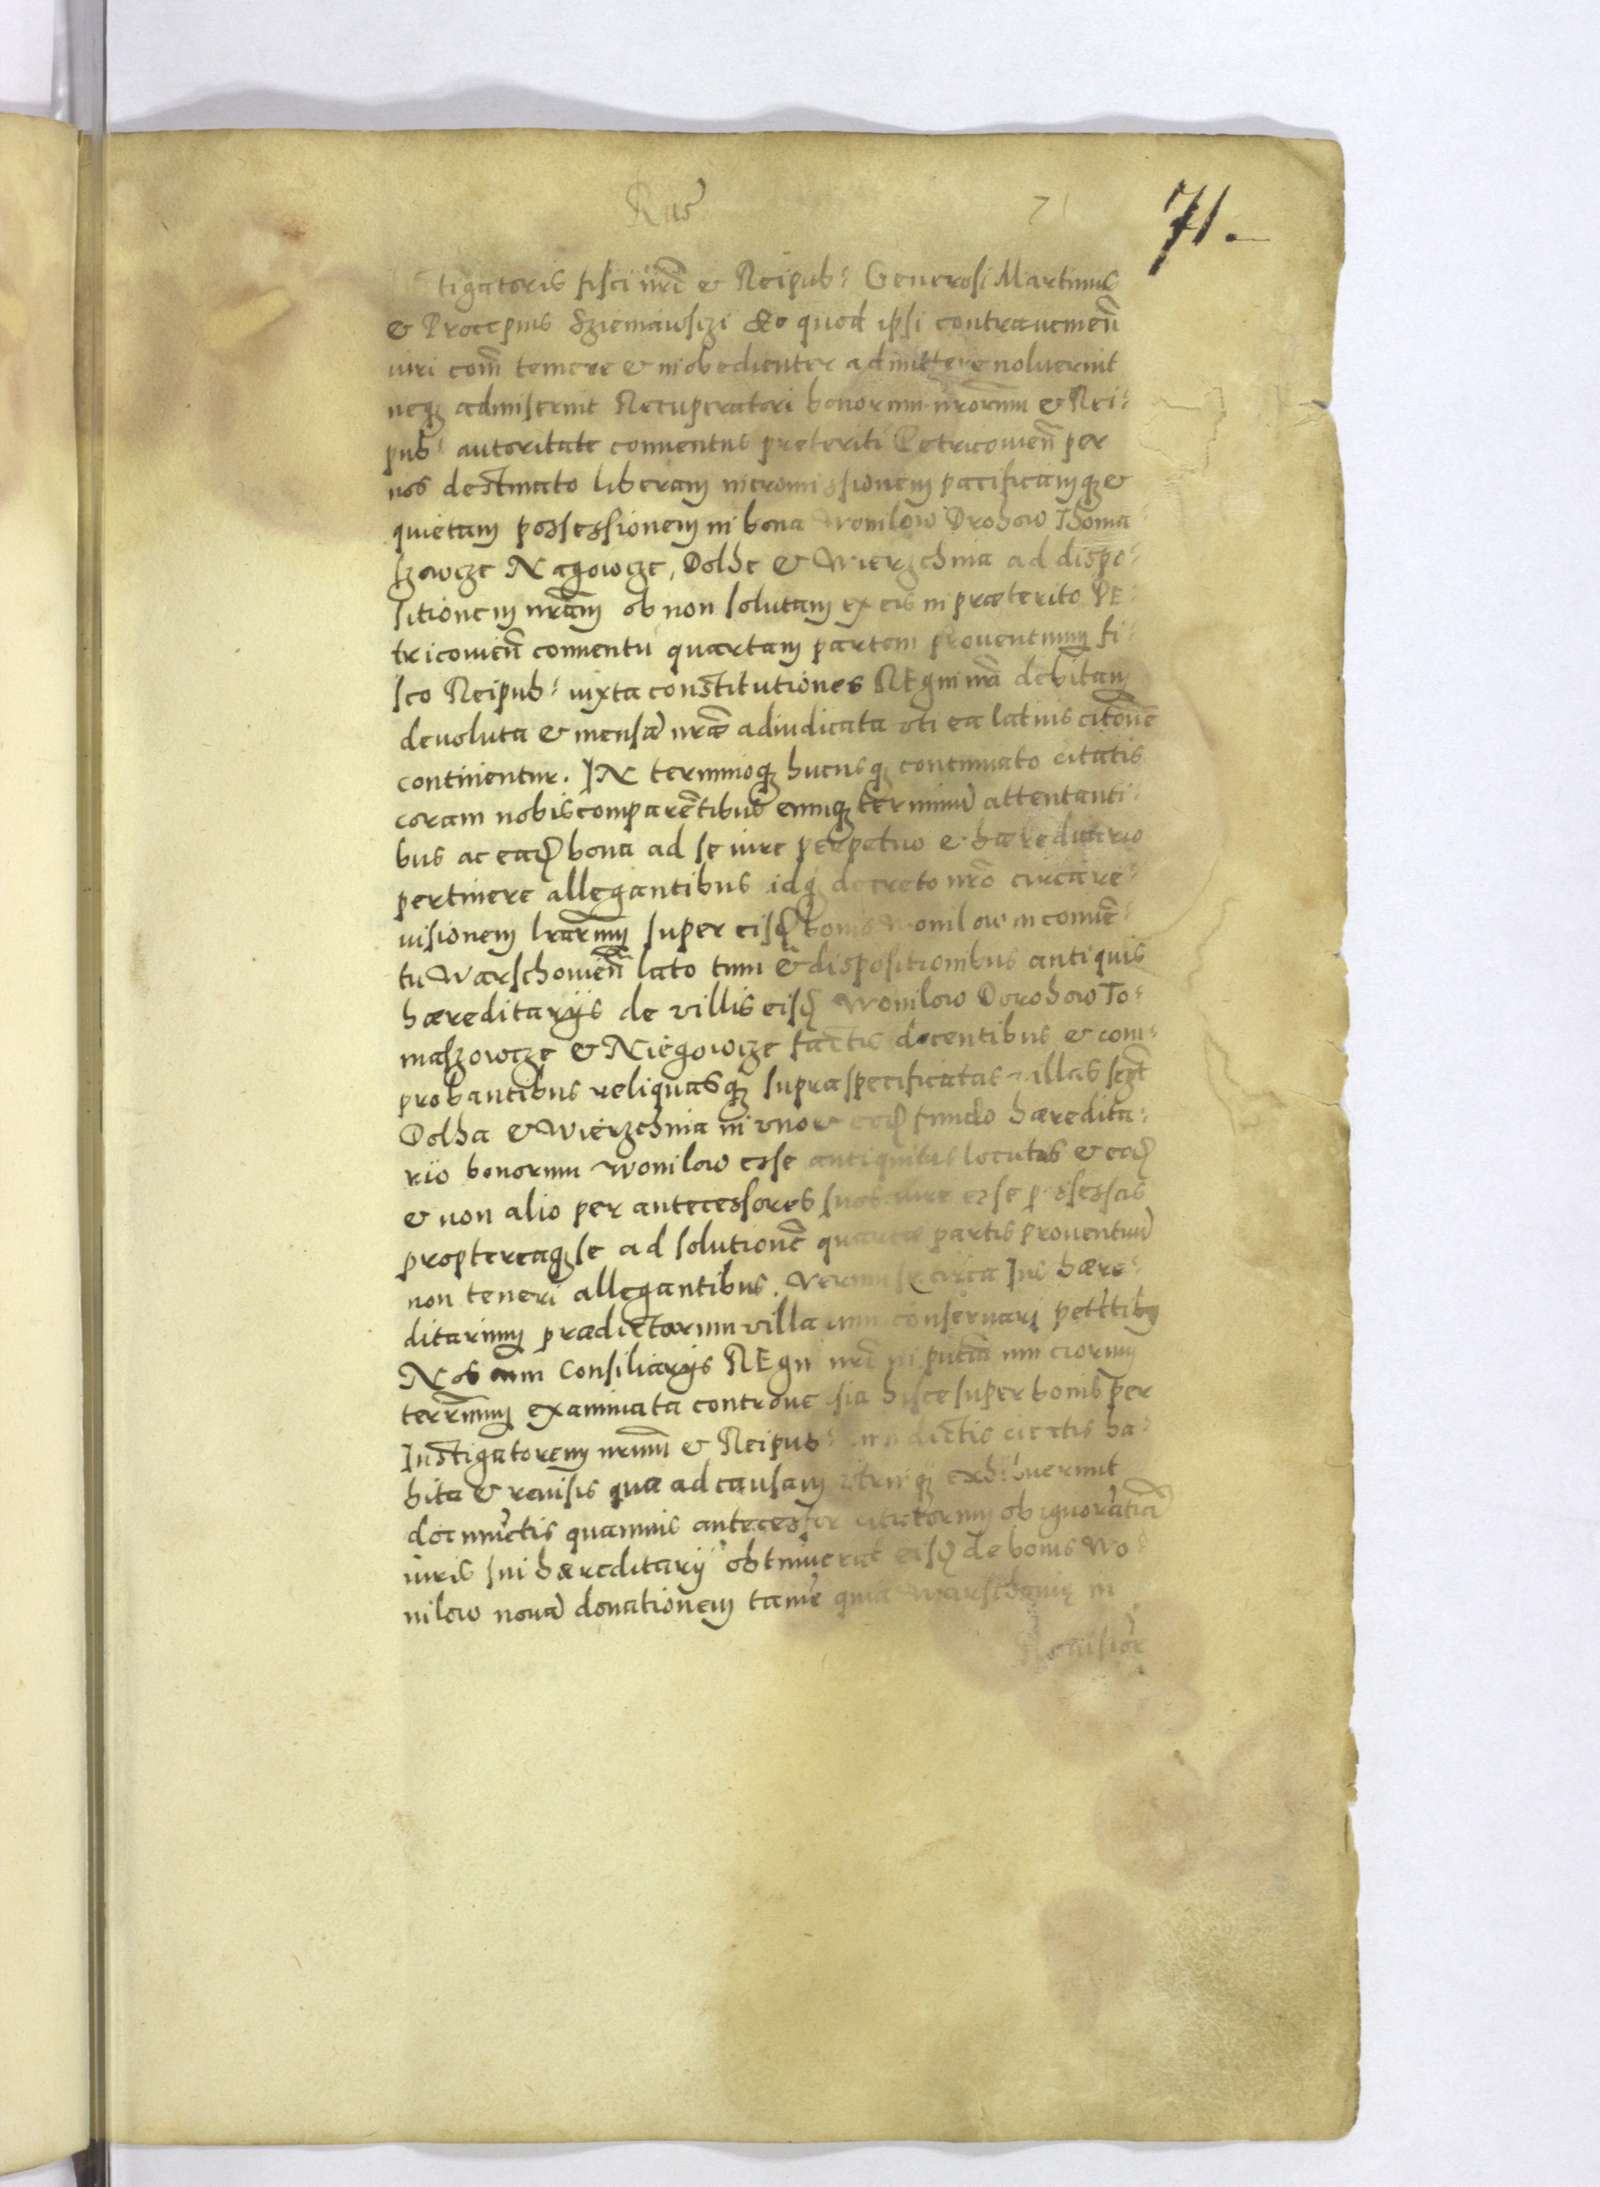 Rus 71 71.
tigatoris fisci nrī & Reipub: Generosi Martinus
& Procopius Sziemawsizi &o quod ipsi contrauemeñ
iuri com̃ temere & inobedienter admittere noluerint
neq₃ admiserint Recuperatori bonorum nrorum & Rei:
pub: autoritate conuentus preteriti Petricouieñ per
nos destinato liberam intromissionem pacificamq₃ &
quietam possessionem in bona Wonilow Drohow Thoma:
szowcze Nagowcze, Dolhe & Wierzchnia ad dispo:
sitionem nrãm ob non solutam ex eis in præterito PE:
tricouieñ conuentu quartam partem prouentuum fi:
sco Reipub: iuxta constitutiones REgni nrã debitam
deuoluta & mensæ nræ adiudicata vti ea latius citõne
continentur. IN terminoq₃ hucusq₃ continuato citatis
coram nobis comparẽtibus eumq₃ terminũ attentanti:
bus ac eadḿ bona ad se iure perpetuo & hæreditario
pertinere allegantibus idq₃ decreto nrõ circa re:
uisionem lrãrum super eisdḿ bonis Wonilow in conuẽ:
tu Warschouieñ lato tum & dispositionibus antiquis
hæreditarijs de villis eisdḿ Wonilow Dorohow To:
maszowcze & Niegowcze factis docentibus & com:
probantibus reliquasq₃ supraspecificatas villas sczt
Dolha & Wierzchnia in vno & eodḿ fundo hæredita:
rio bonorum Wonilow esse antiquitus locatas & eodḿ
& non alio per antecessores suos iure esse possessas
proptereaq₃ se ad solutionẽ quartæ partis prouentuũ
non teneri allegantibus. Verum se circa Ius hære:
ditarium prædictarum villarum conseruari petẽtibus
Nos cum Consiliarijs REgni nrī in pñtia nunciorum
terrarum examinata controuersia hisce super bonis per
Instigatorem nrum & Reipub: prædictis citatis ha:
bita & reuisis quæ ad causam vtrinq₃ exhibuerunt
documẽtis quamuis antecessor citatorum ob ignorãtiã
iuris sui hæreditarij obtinuerat eisdḿ de bonis Wo:
nilow nouã donationem tamẽ quia Warschouiæ in
Reuisiõe